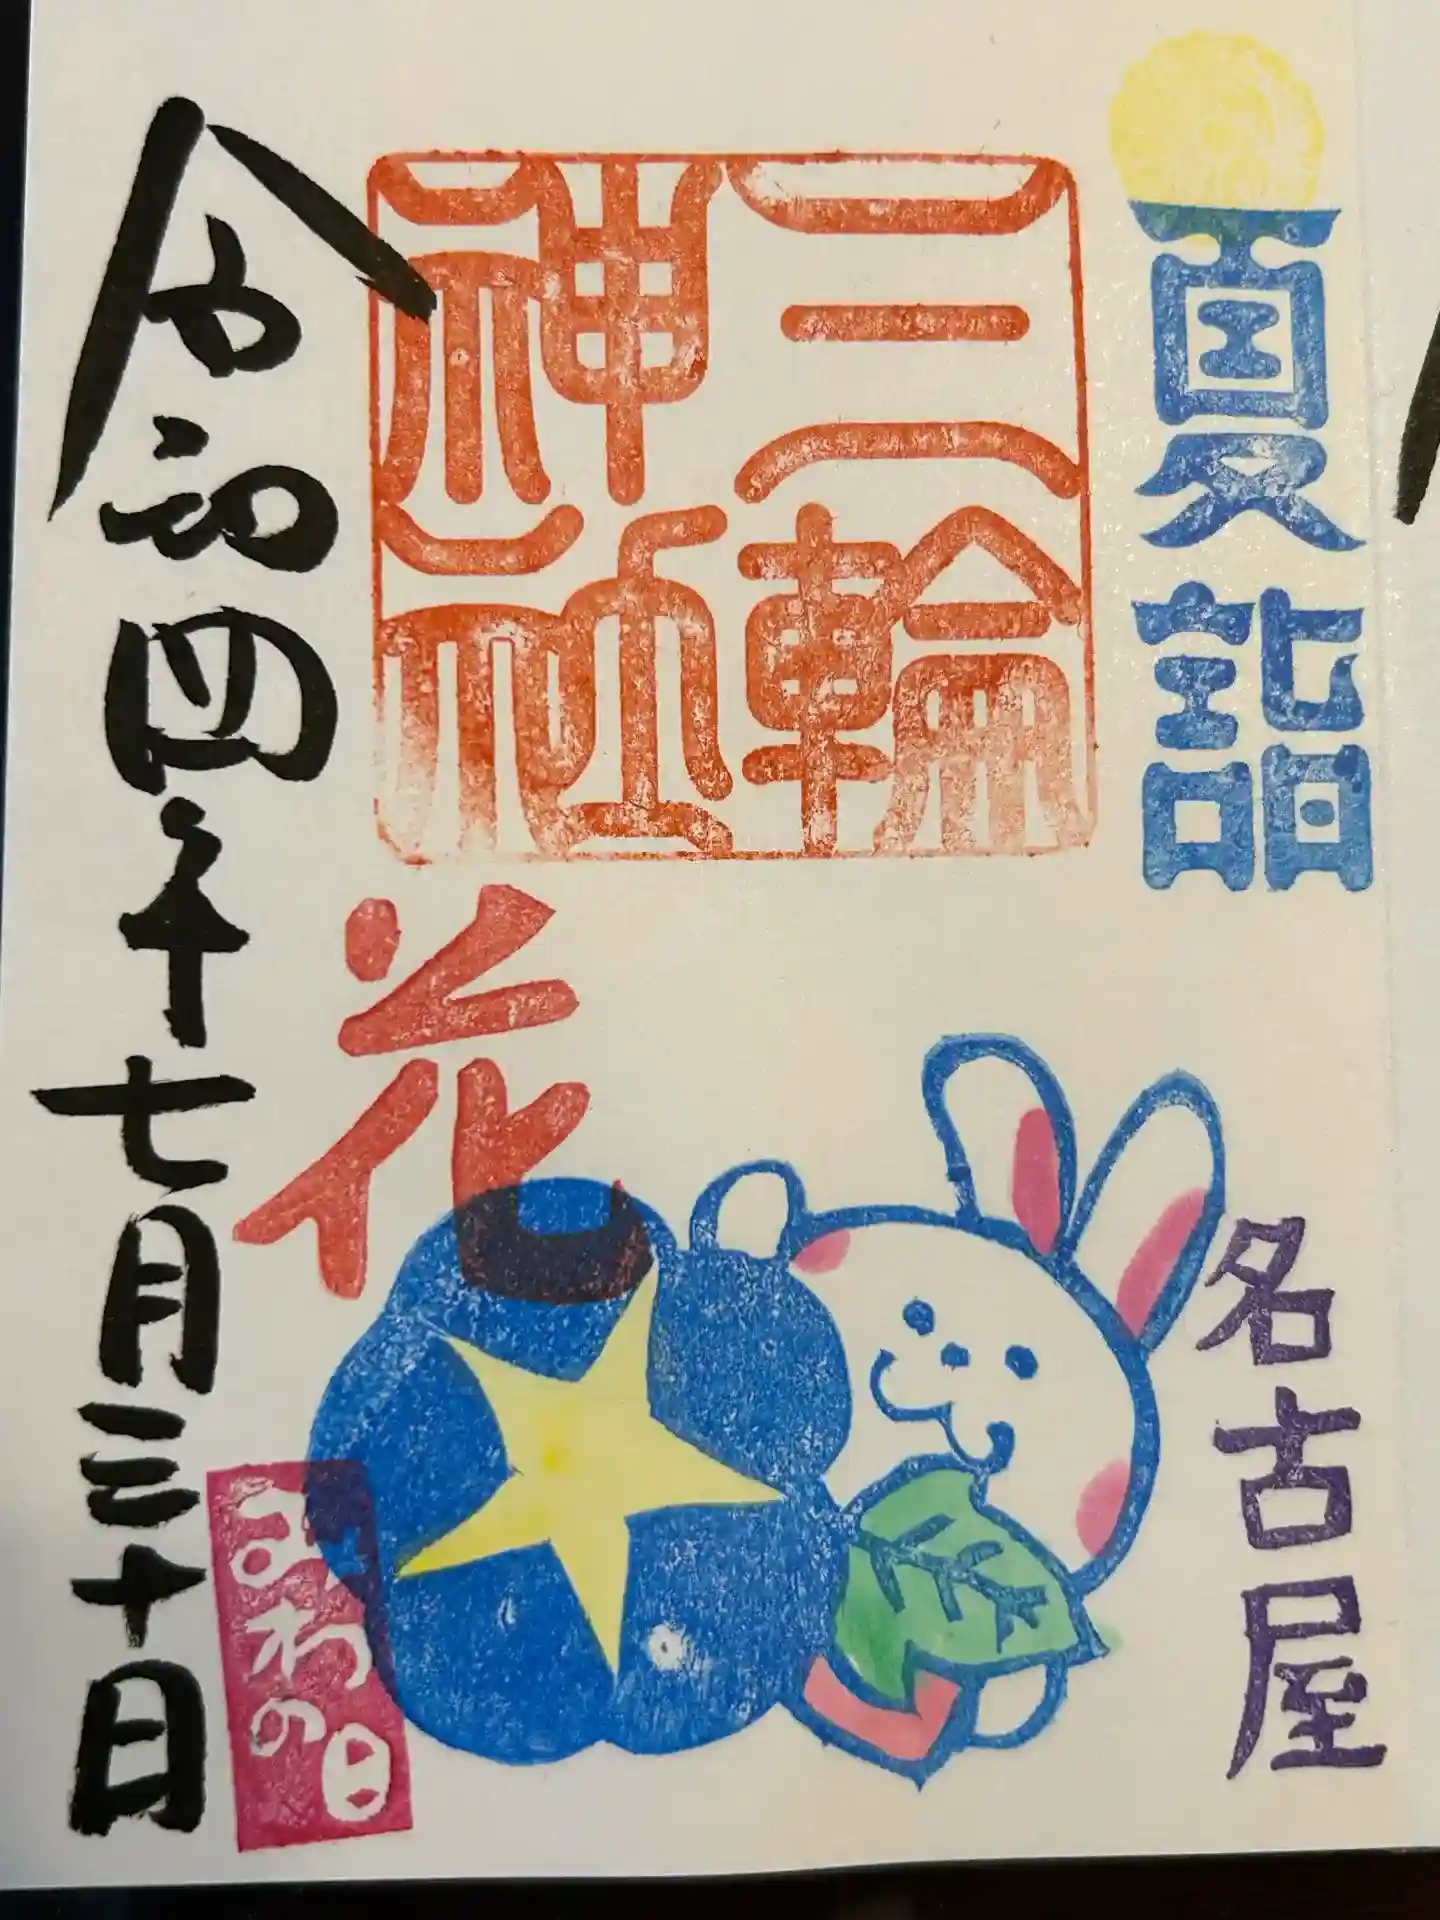 夏詣
名古屋
三輪
神社
花
まわの日
令和四年七月三十日